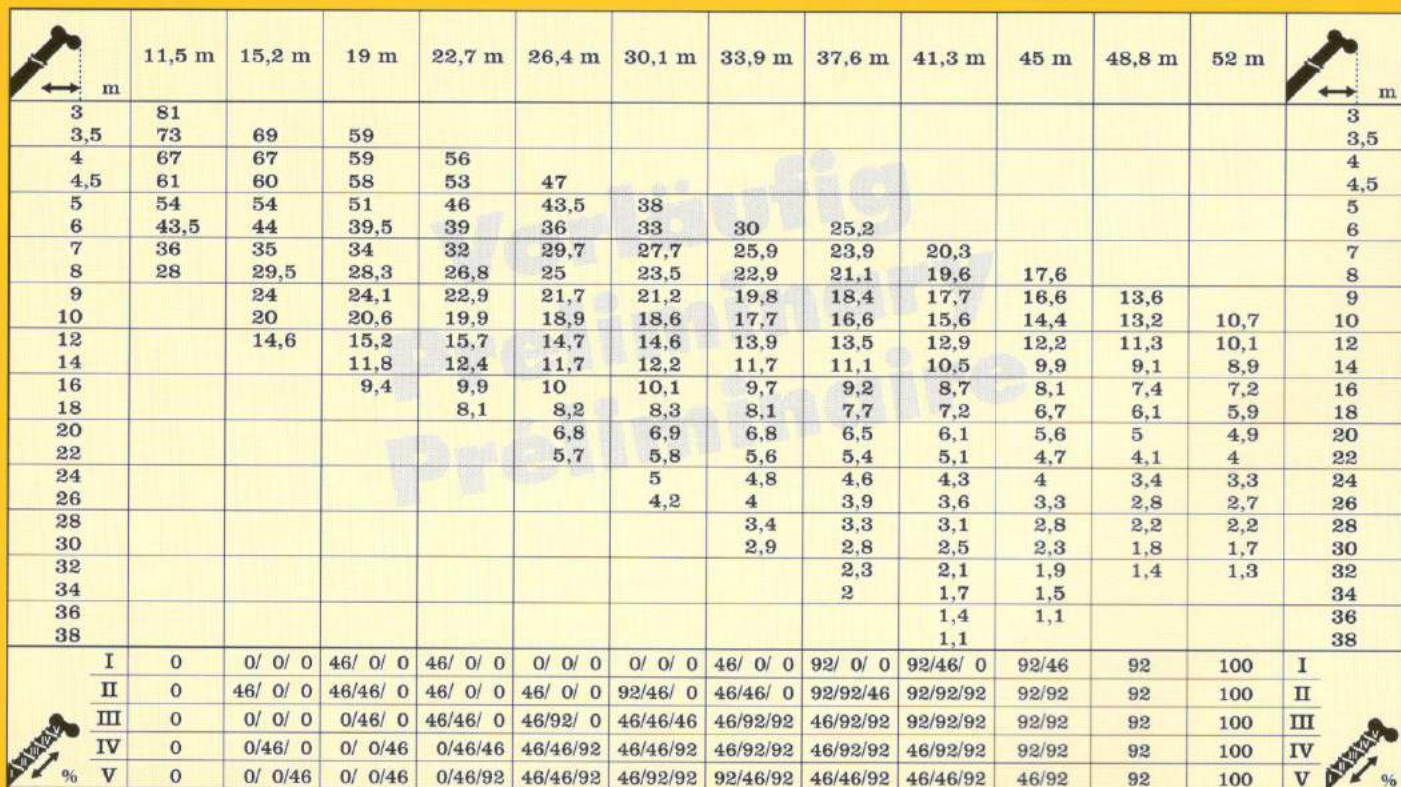 11,5 m 15,2 m 19 m 22,7 m 26,4 m 30,1 m 33,9 m 37,6 m 41,3 m 45 m 48,8 m 52 m
m m
3 81 3
3,5 73 69 59 3,5
4 67 67 59 56 4
4,5 61 60 58 53 47 4,5
5 54 54 51 46 43,5 38 5
6 43,5 44 39,5 39 36 33 30 25,2 6
7 36 35 34 32 29,7 27,7 25,9 23,9 20,3 7
8 28 29,5 28,3 26,8 25 23,5 22,9 21,1 19,6 17,6 8
9 24 24,1 22,9 21,7 21,2 19,8 18,4 17,7 16,6 13,6 9
10 20 20,6 19,9 18,9 18,6 17,7 16,6 15,6 14,4 13,2 10,7 10
12 14,6 15,2 15,7 14,7 14,6 13,9 13,5 12,9 12,2 11,3 10,1 12
14 11,8 12,4 11,7 12,2 11,7 11,1 10,5 9,9 9,1 8,9 14
16 9,4 9,9 10 10,1 9,7 9,2 8,7 8,1 7,4 7,2 16
18 8,1 8,2 8,3 8,1 7,7 7,2 6,7 6,1 5,9 18
20 6,8 6,9 6,8 6,5 6,1 5,6 5 4,9 20
22 5,7 5,8 5,6 5,4 5,1 4,7 4,1 4 22
24 5 4,8 4,6 4,3 4 3,4 3,3 24
26 4,2 4 3,9 3,6 3,3 2,8 2,7 26
28 3,4 3,3 3,1 2,8 2,2 2,2 28
30 2,9 2,8 2,5 2,3 1,8 1,7 30
32 2,3 2,1 1,9 1,4 1,3 32
34 2 1,7 1,5 34
36 1,4 1,1 36
38 1,1 38
I 0 0/ 0/ 0 46/ 0/ 0 46/ 0/ 0 0/ 0/ 0 0/ 0/ 0 46/ 0/ 0 92/ 0/ 0 92/46/ 0 92/46 92 100 I
II 0 46/ 0/ 0 46/46/ 0 46/ 0/ 0 46/ 0/ 0 92/46/ 0 46/46/ 0 92/92/46 92/92/92 92/92 92 100 II
III 0 0/ 0/ 0 0/46/ 0 46/46/ 0 46/92/ 0 46/46/46 46/92/92 46/92/92 92/92/92 92/92 92 100 III
IV 0 0/46/ 0 0/ 0/46 0/46/46 46/46/92 46/46/92 46/92/92 46/92/92 46/92/92 92/92 92 100 IV
% V 0 0/ 0/46 0/ 0/46 0/46/92 46/46/92 46/92/92 92/46/92 46/46/92 46/46/92 46/92 92 100 V %
Vorläufig
Preliminary
Préliminaire